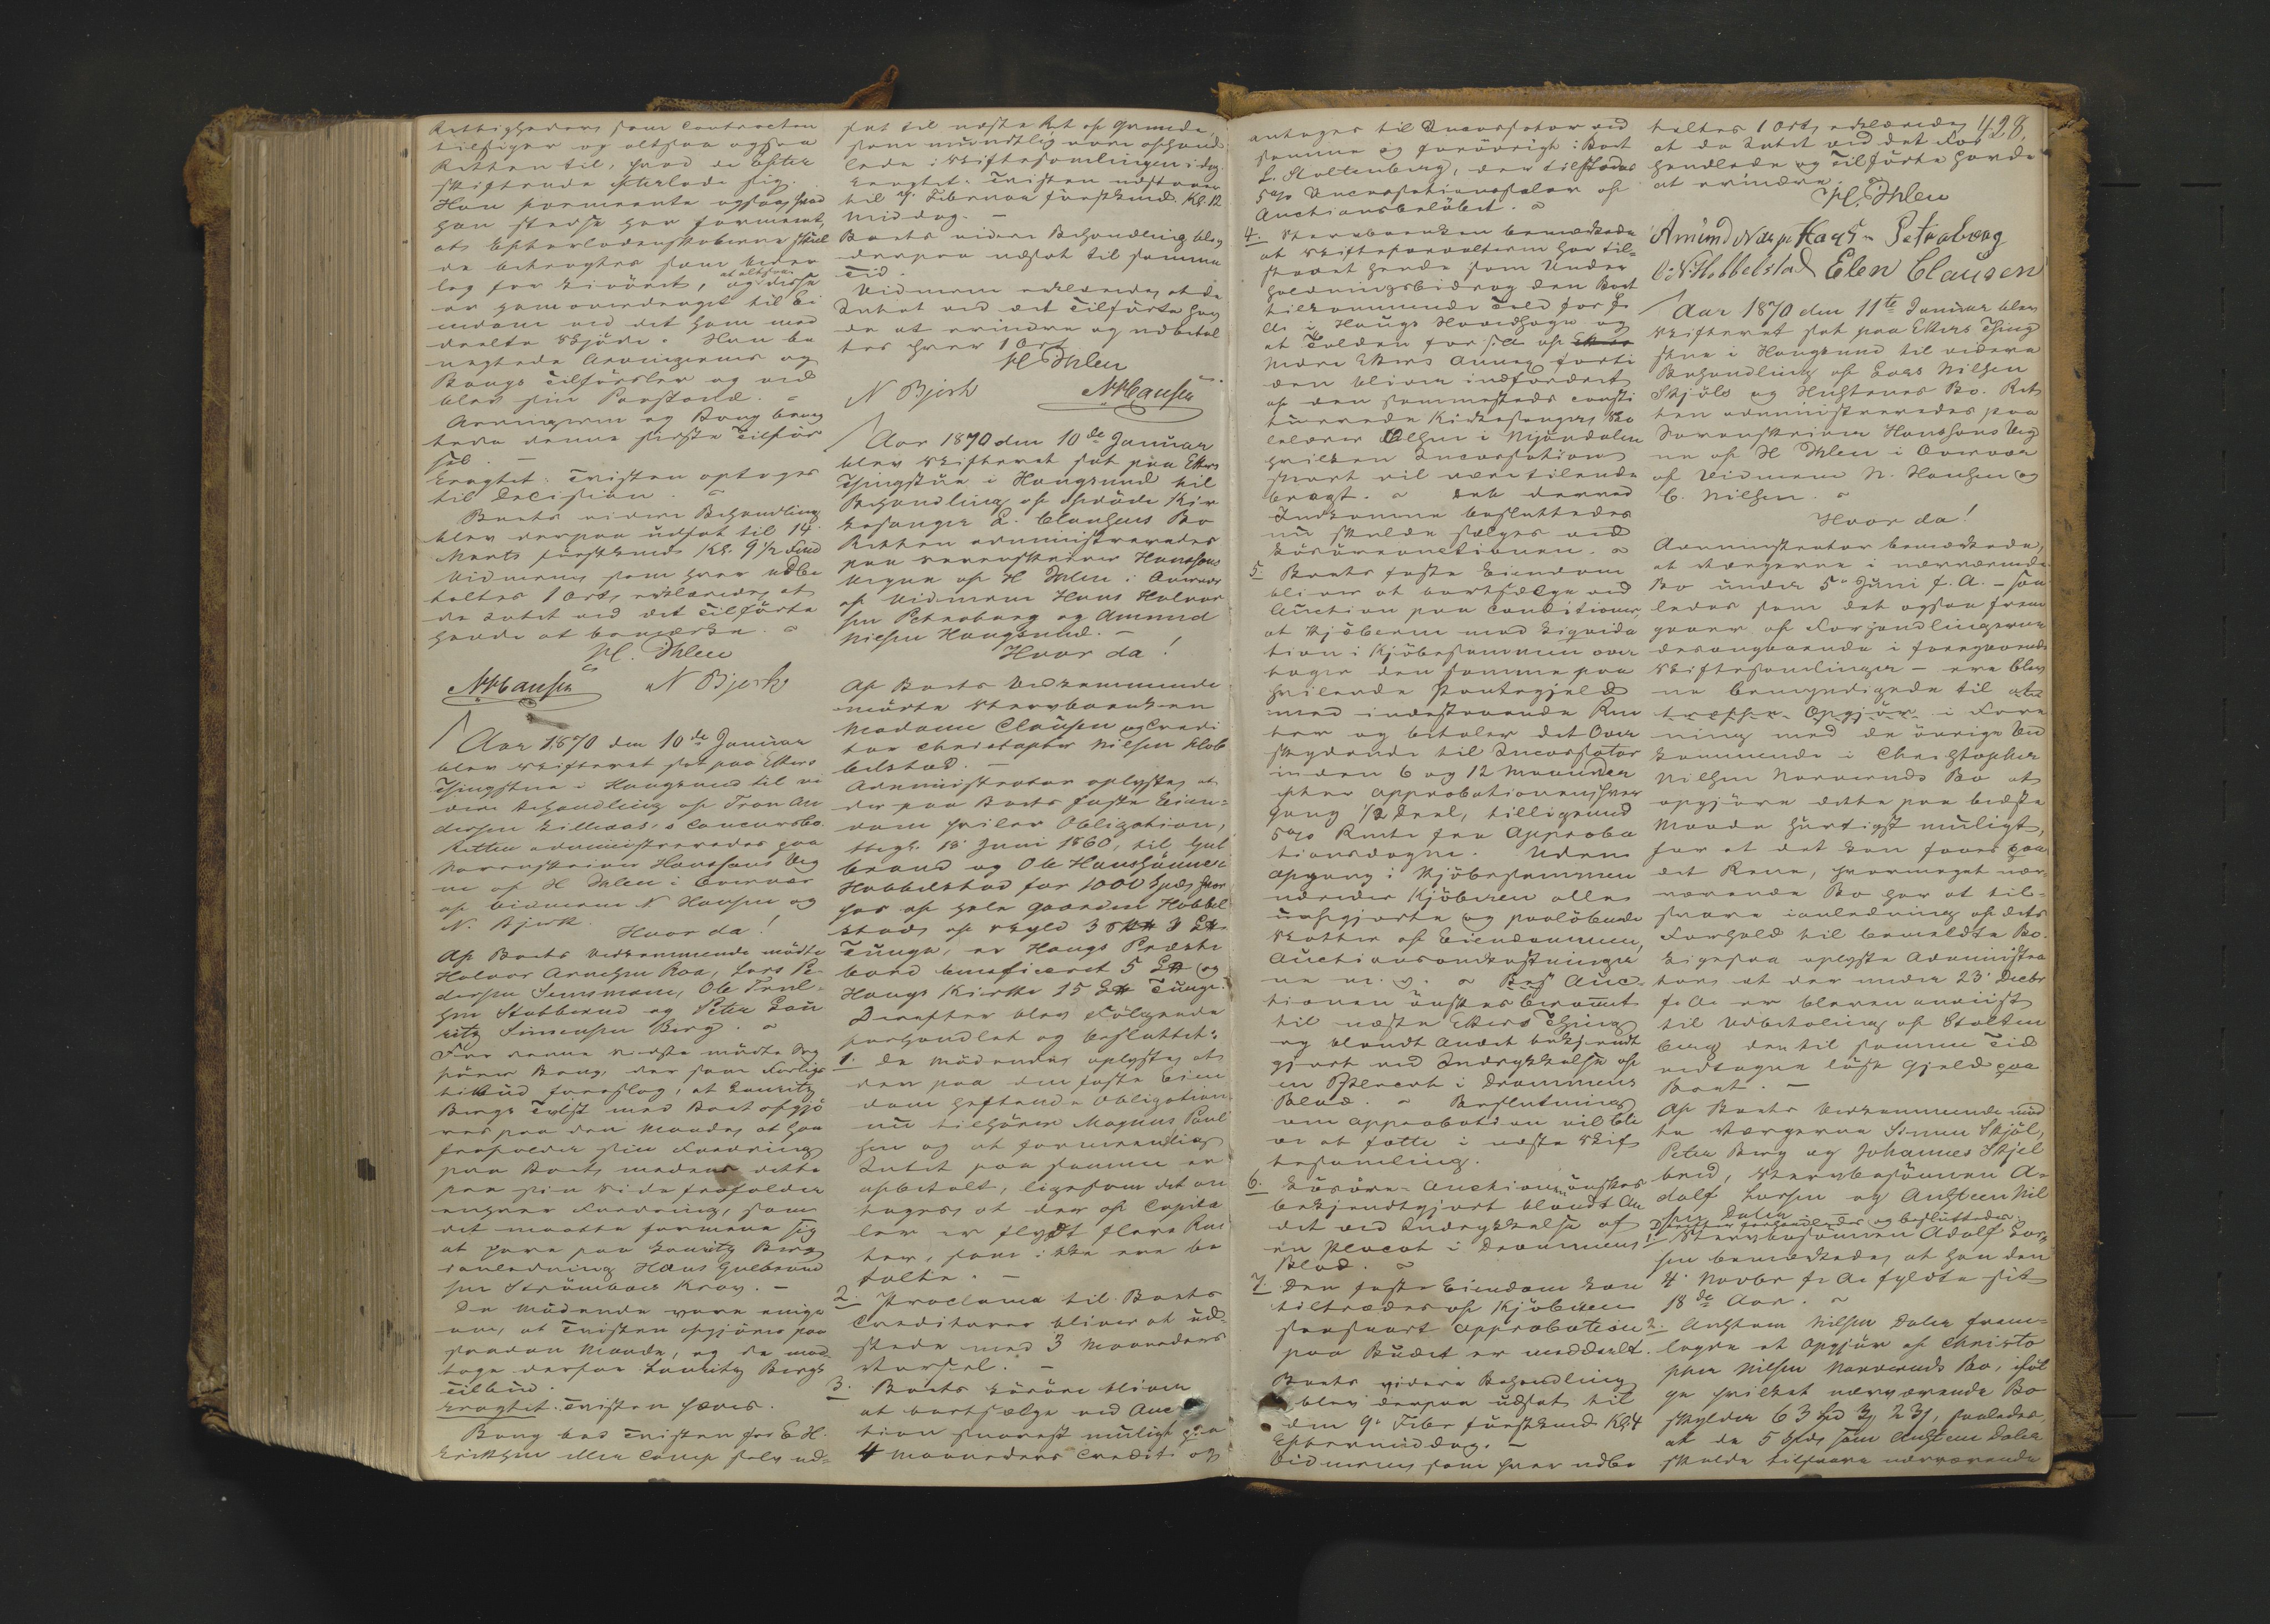 Rettigheder som Contracten
tilsiger og altsaa ogsaa
Retten til, hvad de Efter
skiftende efterlade sig.
Han formente ogsaa, hvad
han stedse har formeent,
at Efterladenskaberne skul
de betragtes som Veder
lag for Livöret, og at altsaa disse
er ham overdraget til Ei
endom ved det ham med
deelte Skjöde. Han be
nægtede Arvingernes og
Bangs Tilförsler og ved
blev sin Paastand.
Arvingerne og Bang benæg
tede denne sidste Tilför
sel.
Eragtet: Tvisten optages
til Decision.
Boets videre Behandling
blev derpaa udsat til 14
Marts förstkmd. Kl. 9 1/2 Form
Vidnerne som hver udbe
taltes 1 Ort, erklærede, at
de Intet ved det Tilförte
havde at bemærke.
H. Ihlen
N Hansen N Bjerk
Aar 1870 den 10de Januar
blev Skifteret sat paa Ekers
Thingstue i Hougsund til vi
dere Behandling af Tron An
dersen Lilleaas's Concursbo.
Retten administreredes paa
Sorenskriver Hanssons Veg
ne af H Ihlen i Overvær
af Vidnerne N Hansen og
N. Bjerk.
Hvor da!
Af Boets Vedkommende mödte
Halvor Arnesen Roa, Lars Pe
dersen Semsmoen, Ole Truls
sen Stubberud og Peter Lau
ritz Simensen Berg.
For denne sidste mödte Sag
förer Bang, der som Forligs
tilbud foreslog, at Lauritz
Bergs Tvist med Boet afgjö
res paa den Maade, at han
frafalder sin Fordring
paa Boet, medens dette
paa sin Side frafalder
enhver Fordring, som
det maatte formene sig
at have paa Lauritz Berg
i anledning Hans Gulbrand
sen Strömboes Krav.
De Mödende vare enige
om, at Tvisten afgjöres paa
saadan Maade, og de mod
toge derfor Lauritz Bergs
Tilbud.
Eragtet: Tvisten hæves.
Bang bad Tvisten for E H.
Eriksen eller Comp selv ud-
sat til næste Ret af Grunde,
som mundtlig vare afhand
lede i Skiftesamlingen i dag.
Eragtet: Tvisten udstaaer
til 9. Februar förstkmd. Kl. 12
Middag.
Boets videre Behandling blev
derpaa udsat til samme
Tid.
Vidnerne erklærede, at de
Intet ved det Tilförte hav
de at erindre og udbetal
tes hver 1 Ort
H Ihlen
N Bjerk N Hansen
Aar 1870 den 10de Januar
blev Skifteret sat paa Ekers
Thingstue i Hougsund til
Behandling af afdöde Kir
kesanger L. Clausens Bo
Retten administreredes
paa Sorenskriver Hanssons
Vegne af H Ihlen i Overvær
af Vidnerne Hans Halvor
sen Petersborg og Amund
Nielsen Hougsund.
Hvor da!
Af Boets Vedkommende
mödte Stervboenken
Madame Clausen og Credi
tor Christopher Nilsen Hob
belstad.
Administrator oplyste, at
der paa Boets faste Eien-
dom hviler Obligation,
thvgl. 18 Juni 1860, til Gul
brand og Ole Hanssönner
Hobbelstad for 1000 Spd, hvor
hos af hele Gaarden Hobbel
stad, af Skyld 3
Tunge, er Hougs Præste
bord beneficeret 5 og
Hougs Kirke 15 Tunge.
Derefter blev Fölgende
forhandlet og besluttet:
1. De Mödende oplyste, at
den paa den faste Eien
dom heftende Obligation
nu tilhörer Magnus Paul
sen og at formeentlig
Intet paa samme er
afbetalt, ligesom det an
toges, at der af Capita
len er flydt flere Ren
ter, som ikke ere be
talte.
2. Proclama til Boets
Creditorer bliver at ud-
stede med 3 Maaneders
Varsel.
3. Boets Lösöre bliver
at bortsælge ved Auc
tion snarest muligt paa
4 Maaneders Credit og
antages til Incassator ved
samme og forövrigt i Boet
L. Stoltenberg, der tilstaaes
5% Incassationssalær af
Auctionsbelöbet.
4. Stervboenken bemærkede
at Skifteforvalteren har til-
staaet hende som Under
holdningsbidrag den Boet
tilkommende Told for f.
A. i Hougs Hovedsogn og
at Tolden for f. A. af
Nedre Ekers Annex forti
den bliver indfordret
af den sammesteds consti
tuerede Kirkesanger, Sko
lelærer Olsen i Mjöndalen
hvilken Incassation
snart vil være tilende
bragt. Det derved
Indkomne besluttedes
nu skulde sælges ved
Lösöreauctionen.
5. Boets faste Eiendom
bliver at bortsælge ved
Auction paa Conditioner,
at Kjöberen mod Liqvida
tion i Kjöbesummen over
tager den samme paa
hvilende Pantegjeld
med indestaaende Ren
ter og betaler det Over
skydende til Incassator
inden 6 og 12 Maaneder
efter Approbationen, hver
Gang 1/2 Deel, tilligemed
5% Rente fra Approba
tionsdagen. Uden
Afgang i Kjöbesummen
udreder Kjöberen alle
uafgjorte og paalöbende
Skatter af Eiendommen,
Auctionsomkostninger
ne m. v. Auc-
tionen önskes berammet
til næste Ekers Thing
og blandt Andet bekjendt
gjort ved Indrykkelse af
en Placat i Drammens
Blad. Beslutning
om Approbation vil bli
ve at fatte i næste Skif
tesamling.
6. Lösöre-Auctionen önskes
bekjendtgjort blandt An
det ved Indrykkelse af
en Placat i Drammens
Blad.
7. Den faste Eiendom kan
tiltrædes af Kjöberen
saasnart Approbation
paa Budet er meddeelt.
Boets videre Behandling
blev derpaa udsat til
den 9. Febr förstkmd Kl. 4
Eftermiddag.
Vidnerne, som hver udbe
428.
taltes 1 Ort, erklærede,
at de Intet ved det For
handlede og Tilförte havde
at erindre.
H. Ihlen
Amund Petersborg
Hobbelstad Elen Clausen
Aar 1870 den 11te Januar blev
Skifteret sat paa Ekers Thing
stue i Hougsund til videre
Behandling af Lars Nilsen
Skjöls og Hustrues Bo. Ret
ten administreredes paa
Sorenskriver Hanssons Veg
ne af H Ihlen i Overvær
af Vidnerne N. Hansen og
C. Nilsen.
Hvor da!
Administrator bemærkede,
at Værgerne i nærværende
Bo under 5 Juni f. A. – saa
ledes som det ogsaa frem
gaaer af Forhandlingerne
desangaaende i foregaaende
Skiftesamlinger – ere blev
ne bemyndigede til at
træffe Opgjör i Fore
ning med de övrige Ved
kommende i Christopher
Nilsen Narverud's Bo at
opgjöre dette paa bedste
Maade hurtigst muligt,
for at det kan faaes paa
det Rene, hvormeget nær-
værende Bo har at til-
svare i anledning af dets
Forhold til bemeldte Bo.
Ligesaa oplyste Administra
tor, at der under 23 Decbr
f. A. er bleven anviist
til Udbetaling af Stolten
berg den til samme Tid
vedtagne löse Gjeld paa
Boet.
Af Boets Vedkommende möd
te Værgerne Simen Skjöl,
Peter Berg og Johannes Skjel
bred, Stervbosönnen A-
dolf Larsen og Anthon Nil
sen Daler
Derefter forhandledes og besluttedes:
1. Stervbosönnen Adolf Lar
sen bemærkede, at han den
4. Novbr f. A. fyldte sit
18de Aar.
2. Anthon Nilsen Daler frem-
lagde et Opgjör af Christo
pher Nilsen Narveruds Bo, iföl
ge hvilket nærværende Bo
skylder 63 Spd 3 23, saaledes,
at de 5 Spd, som Anthon Daler
skulde tilsvare nærværende